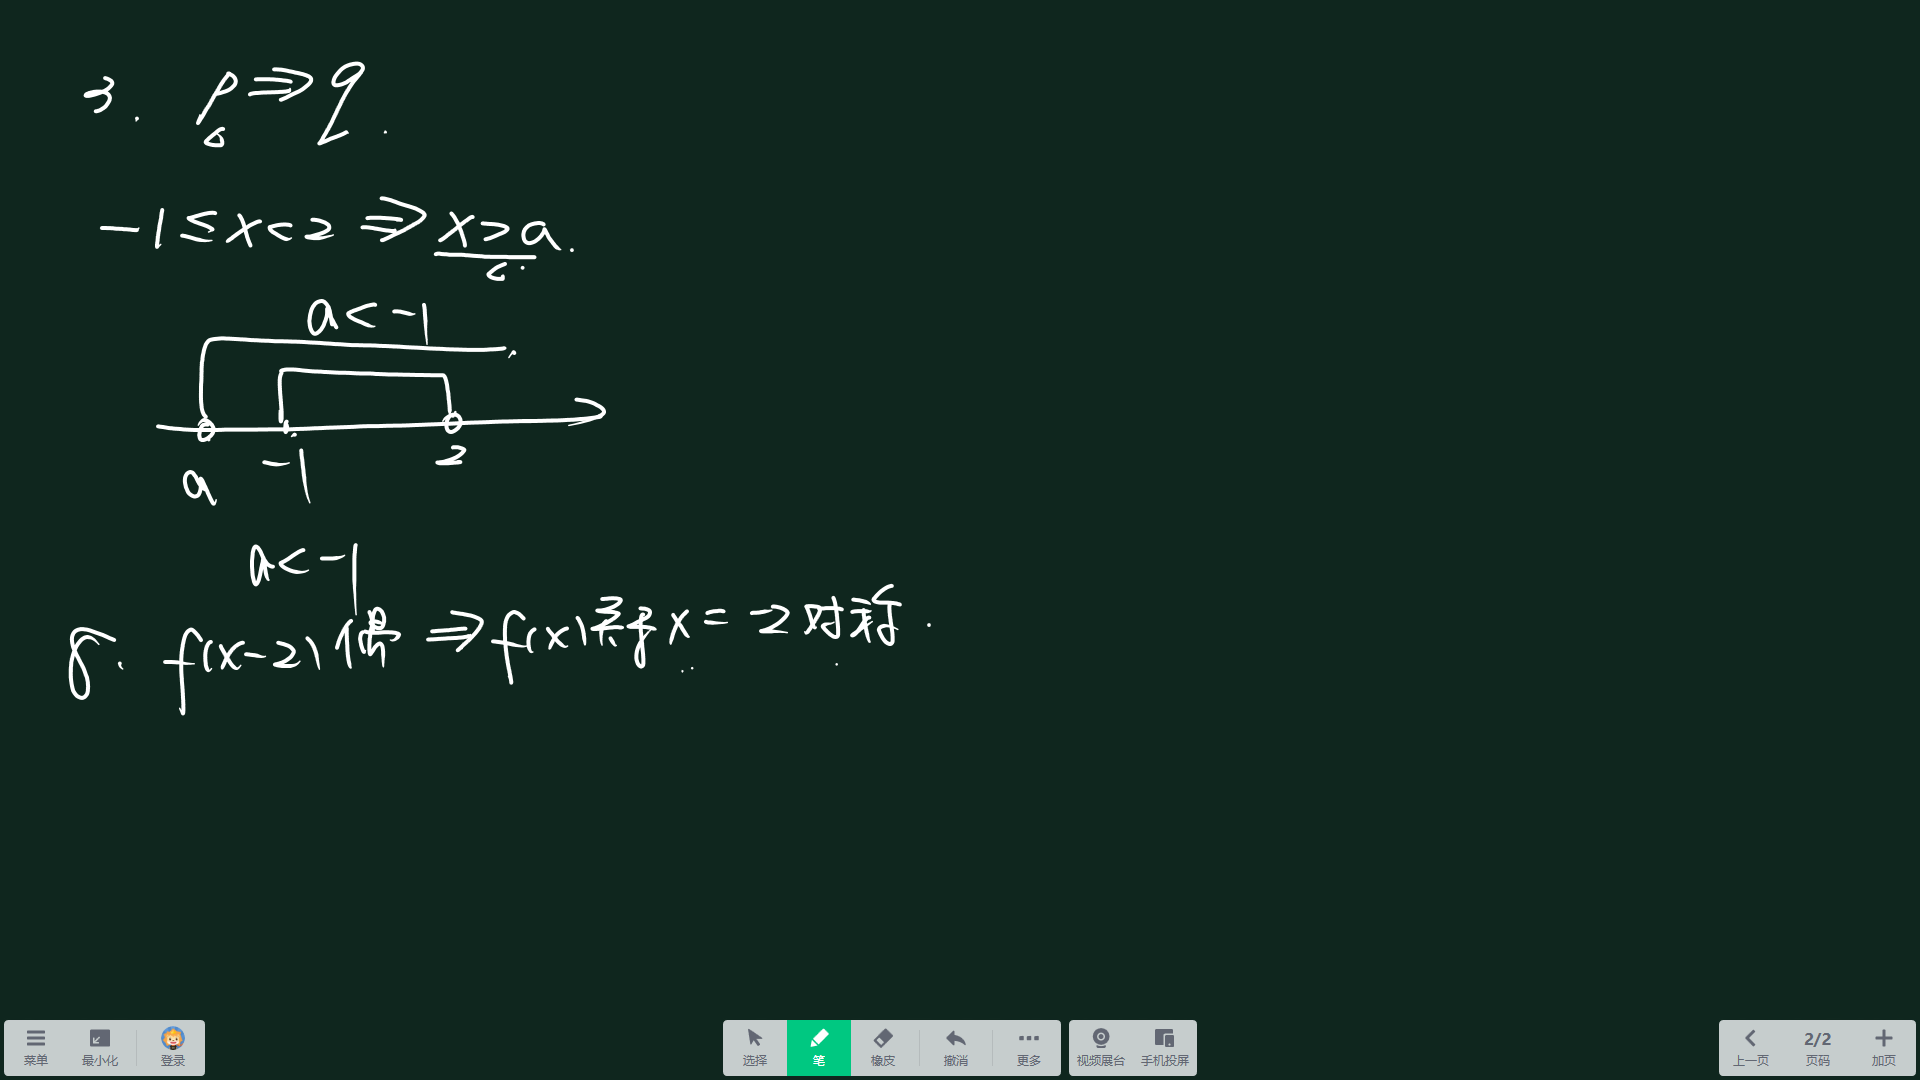 3. p⇒q.
-1≤x<2 ⇒ x>a.
a<-1
a -1 2
a<-1
8. f(x-2)偶 ⇒ f(x)关于x=-2对称.
菜单 最小化 登录 选择 笔 橡皮 撤消 更多 视频展台 手机投屏 上一页 2/2 页码 加页